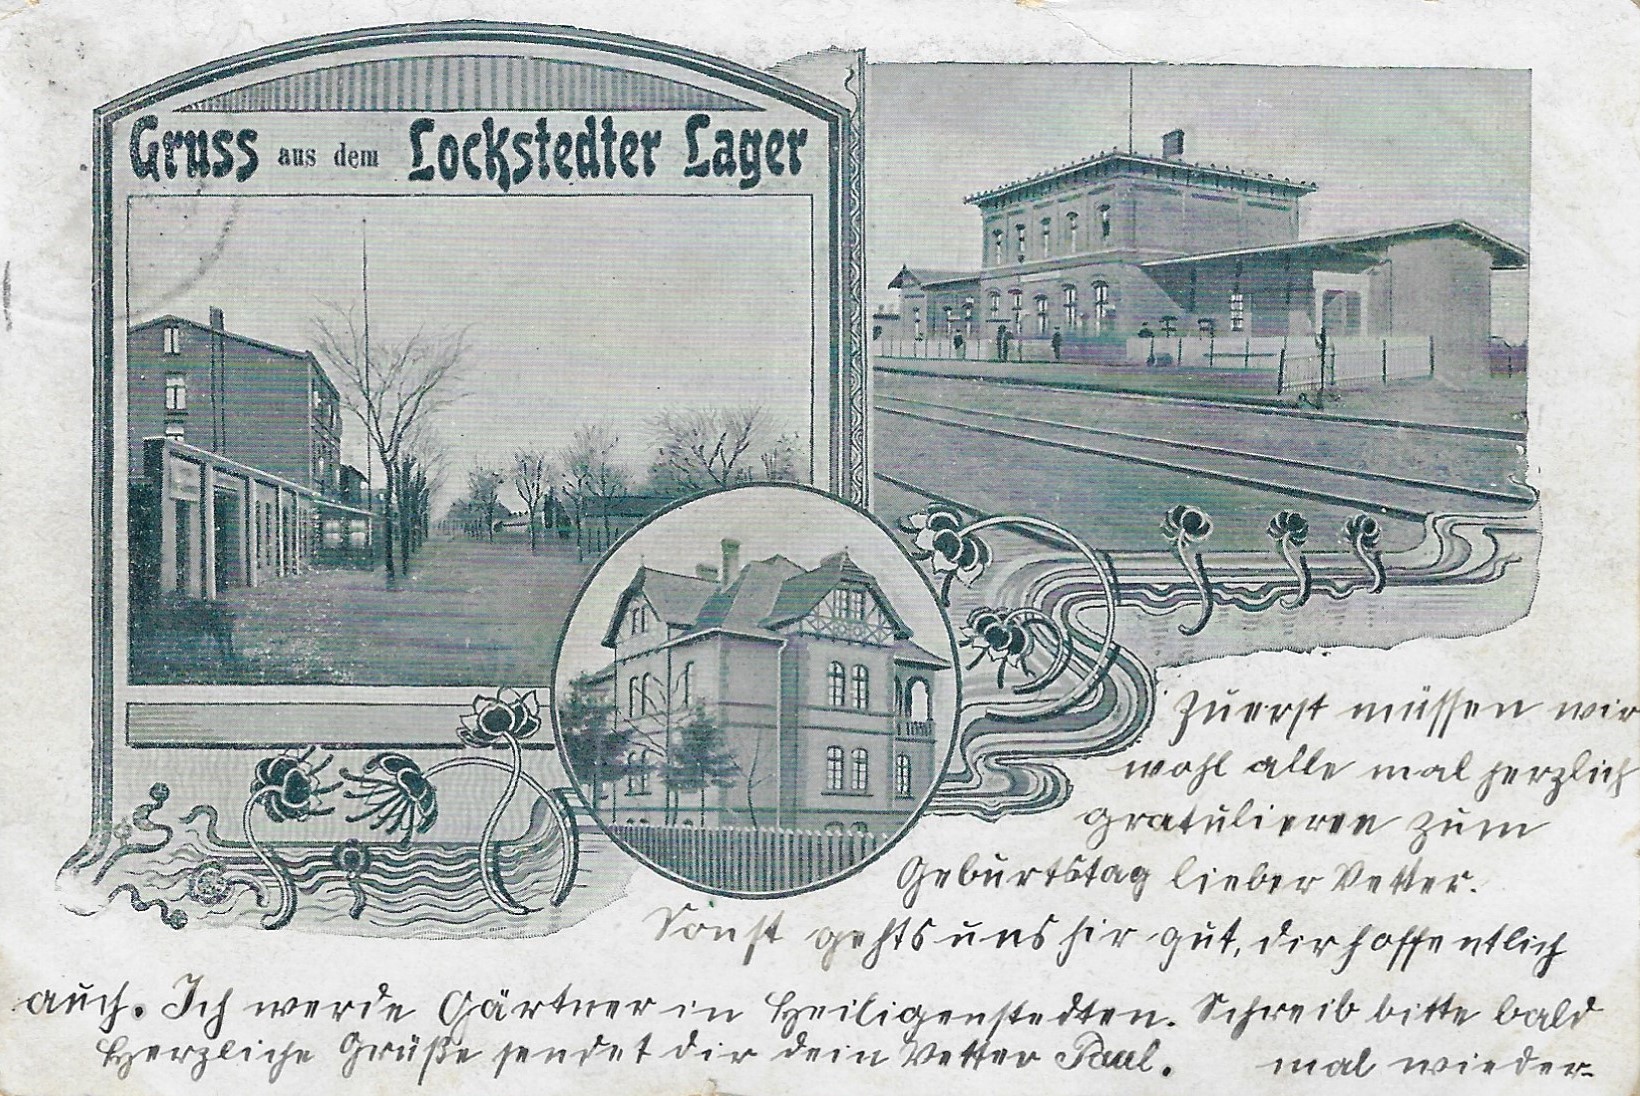 Gruss aus dem Lockstedter Lager
Zuerst müssen wir
wohl alle mal herzlich
gratulieren zum
Geburtstag lieber Vetter.
Sonst gehts uns hir gut, dir hoffentlich
auch. Ich werde Gärtner in Heiligenstedten. Schreib bitte bald
Herzliche Grüße sendet dir dein Vetter Paul. mal wieder.